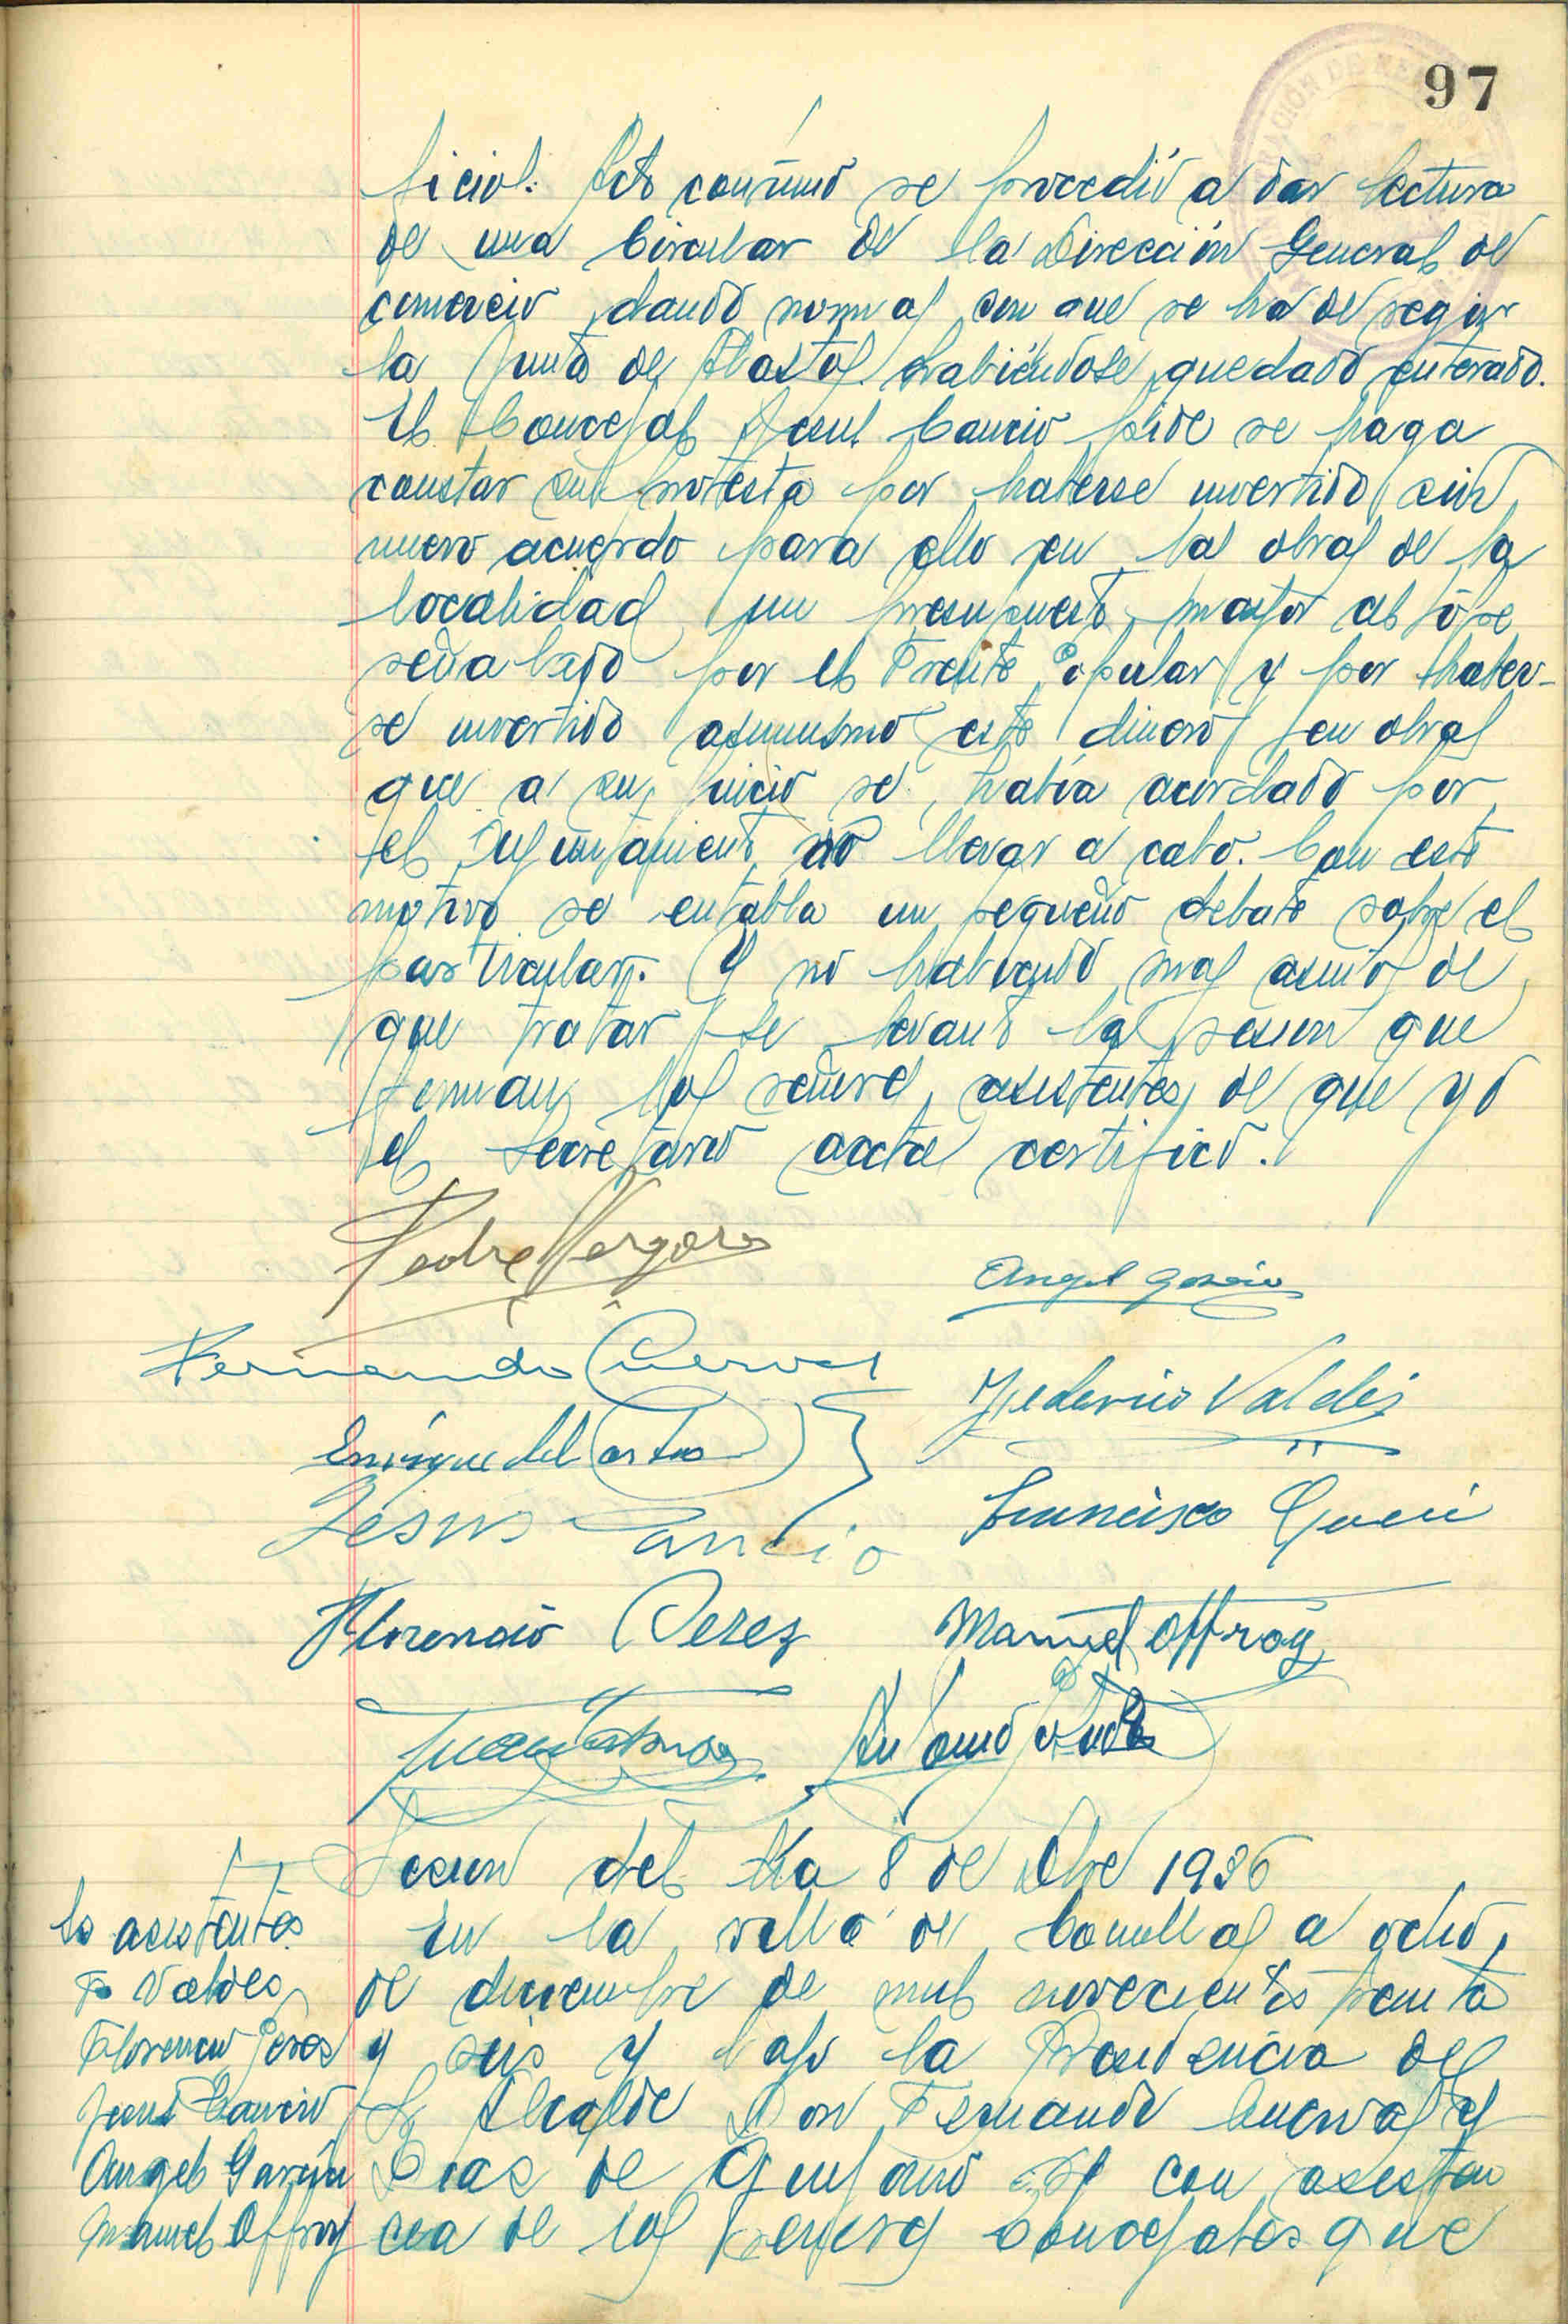 97
ficial. Acto continuo se procedió a dar lectura
de una Circular de la Dirección General de
comercio, dando normas con que se ha de regir
la Junta de Abastos habiéndose quedado enterado.
El Concejal Jesus Cancio pide se haga
constar su protesta por haberse invertido sin
nuevo acuerdo para ello en las obras de la
localidad un presupuesto mayor al
señalado por el Frente Popular y por haber-
se invertido asimismo este dinero en obras
que a su juicio se había acordado por
el Ayuntamiento no llevar a cabo. Con este
motivo se entabla un pequeño debate sobre el
particular. Y no habiendo mas asuntos de
que tratar se levantó la sesion que
firman los señores asistentes de que yo
el Secretario acctal certifico.
Pedro Vergara
Angel Garcia
Fernando Cuevas
Federico Valdés
Enrique del Castro
Jesus Cancio
Francisco
Florencio Perez
Manuel Offroy
Juan
Antonio
Sesion del dia 8 de Dbre 1936
En la villa de Comillas a ocho
de diciembre de mil novecientos treinta
y seis y bajo la Presidencia del
Sr Alcalde Don Fernando Cuevas y
Dias de Quijano y con asisten
cia de los señores Concejales que
Sres asistentes
F. Valdes
Florencio Peres
Jesus Cancio
Angel García
Manuel Offroy